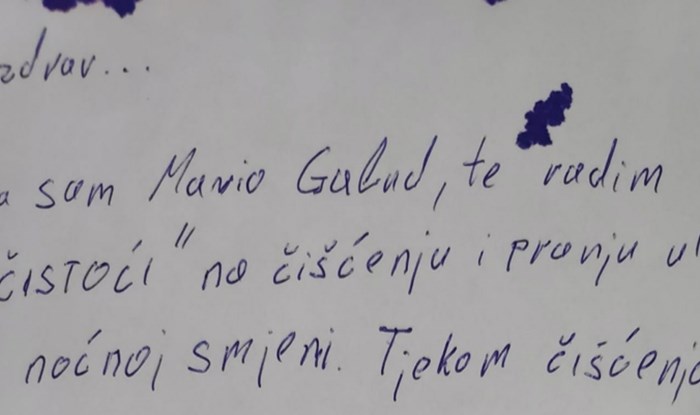 zdrav...
a sam Mario Galud, te radim
ČISTOĆI" na čišćenju i pranju ul
noćnoj smjeni. Tjekom čišćenja